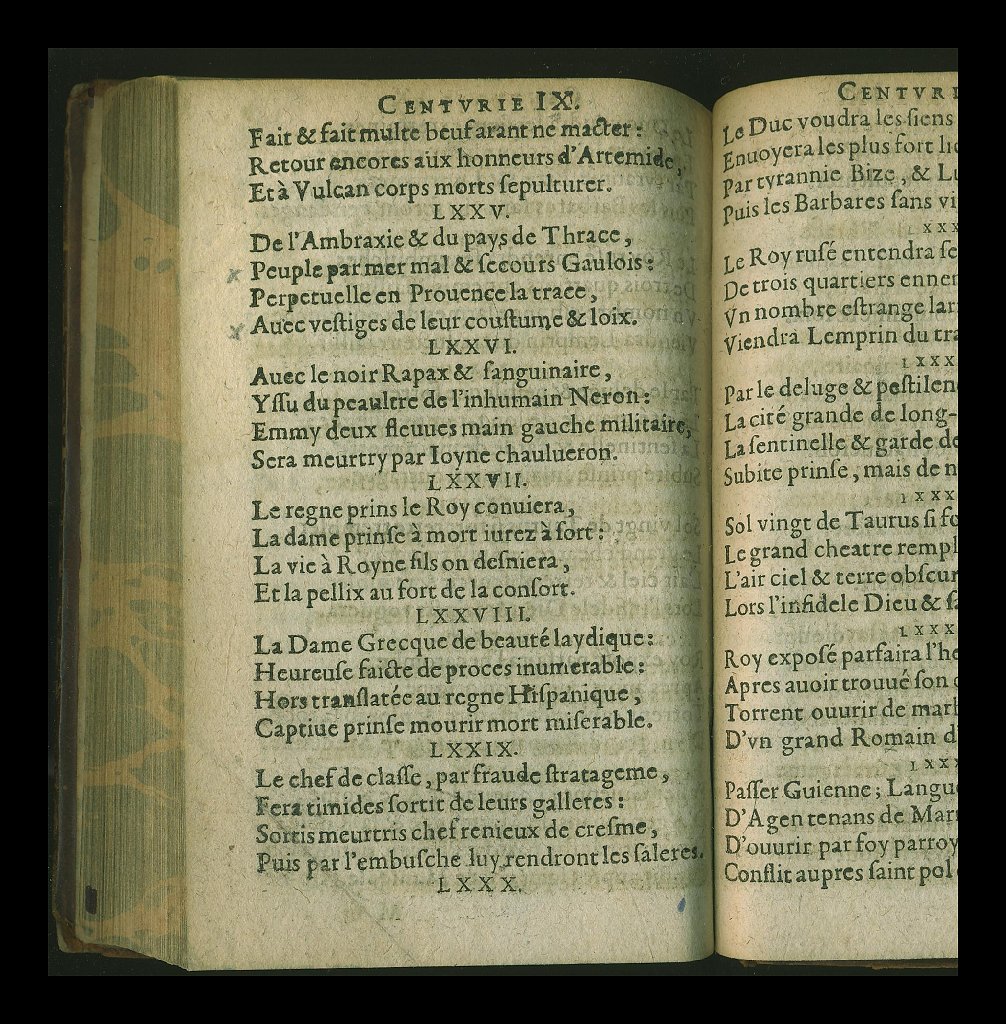 CENTVRIE IX.
Fait & fait multe beuf arant ne macter:
Retour encores aux honneurs d'Artemide,
Et à Vulcan corps morts ſepulturer.
LXXV.
De l'Ambraxie & du pays de Thrace,
Peuple par mer mal & ſecours Gaulois:
Perpetuelle en Prouence la trace,
Auec veſtiges de leur couſtume & loix.
LXXVI.
Auec le noir Rapax & ſanguinaire,
Yſſu du peaultre de l'inhumain Neron:
Emmy deux fleuues main gauche militaire,
Sera meurtry par Ioyne chaulueron.
LXXVII.
Le regne prins le Roy conuiera,
La dame prinſe à mort iurez à ſort:
La vie à Royne fils on deſniera,
Et la pellix au fort de la conſort.
LXXVIII.
La Dame Grecque de beauté laydique:
Heureuſe faicte de proces inumerable:
Hors tranſlatée au regne Hiſpanique,
Captiue prinſe mourir mort miſerable.
LXXIX.
Le chef de claſſe, par fraude ſtratageme,
Fera timides ſortit de leurs galleres:
Sortis meurtris chef renieux de creſme,
Puis par l'embuſche luy rendront les ſaleres.
LXXX.
CENTVRI
Le Duc voudra les ſiens
Enuoyera les plus fort lie
Par tyrannie Bize, & Lu
Puis les Barbares ſans vi
XXX
Le Roy ruſé entendra ſe
De trois quartiers ennem
Vn nombre eſtrange lar
Viendra Lemprin du tra
LXXX
Par le deluge & peſtilen
La cité grande de long-
La ſentinelle & garde de
Subite prinſe, mais de n
LXXX
Sol vingt de Taurus ſi fo
Le grand cheatre rempl
L'air ciel & terre obſcur
Lors l'infidele Dieu & ſa
LXXX
Roy expoſé parfaira l'he
Apres auoir trouué ſon
Torrent ouurir de marb
D'vn grand Romain d
LXXX
Paſſer Guienne; Langue
D'Agen tenans de Marm
D'ouurir par foy parroy
Conflit aupres ſaint pol